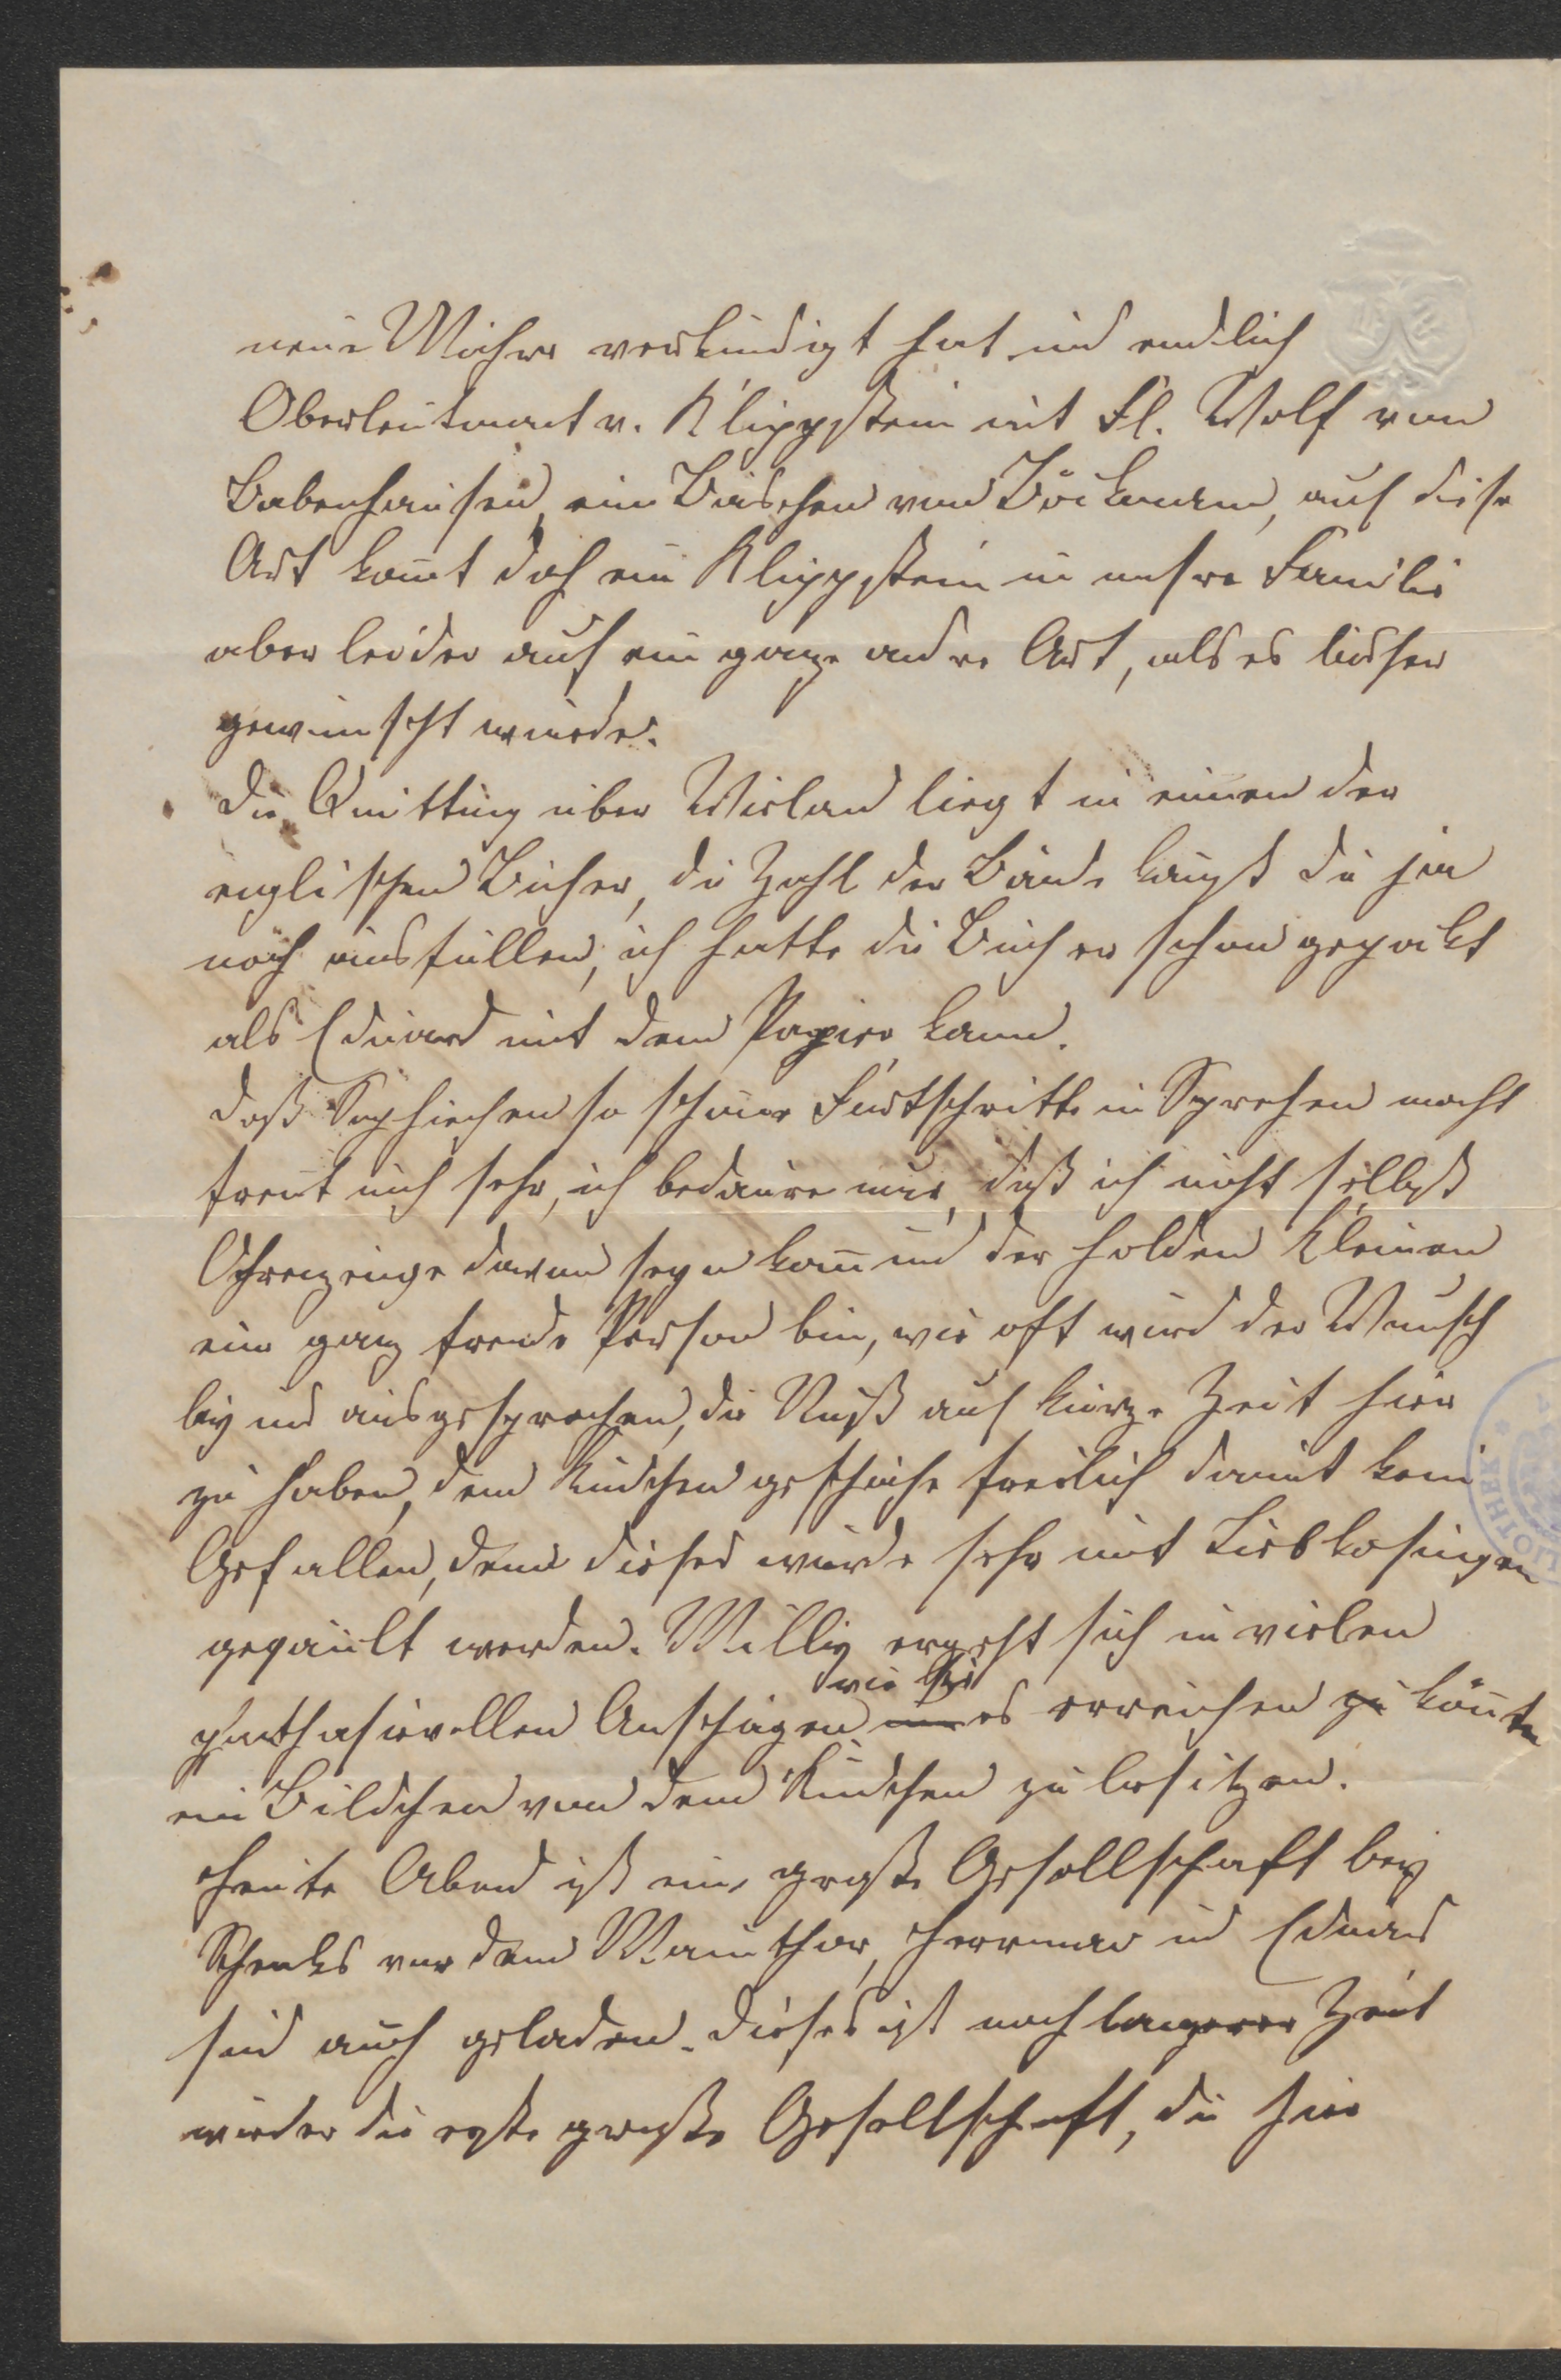 neue Mathes verkündigt hat und endlich
Oberleutnant v. Klippstein mit Fl. Wolf von
Babenhausen, ein Bäschen von Böckmann, auf diese
Art kom̄t doch ein Klippstein in unsre Familie
aber leider auf ein ganz andre Art, als es bisher
gewünscht wurde.
Die Quittung über Wieland liegt in einem der
englischen Bücher, die Zahl der Bände kan̄st du ja
noch ausfüllen, ich hatte die Bücher schon gepackt
als Eduard mit dem Papier kam.
Daß Sophiechen so schöne Fortschritte in Sprechen macht
freut mich sehr, ich bedaure nur, daß ich nicht selbst
Ohrenzeuge davon seyn kan̄ und der holden Kleinen
eine ganz fremde Person bin, wie oft wird der Wunsch
bey uns ausgesprochen, die Nuß auf kurze Zeit hier
zu haben, dem Kindchen geschähe freilich damit kein
Gefallen, denn dieses würde sehr mit Liebkosungen
gequält werden. Willy ergeht sich in vielen
phantasievollen Anschlägen wie sie es erreichen zu kön̄te
ein Bildchen von dem Kindchen zu besitzen.
Heute Abend ist eine große Gesellschaft bey
Schenks vor dem Mainthor, Herrman und Eduard
sind auch geladen. Dieses ist nach langerer Zeit
wieder die erste große Gesellschaft, die hier